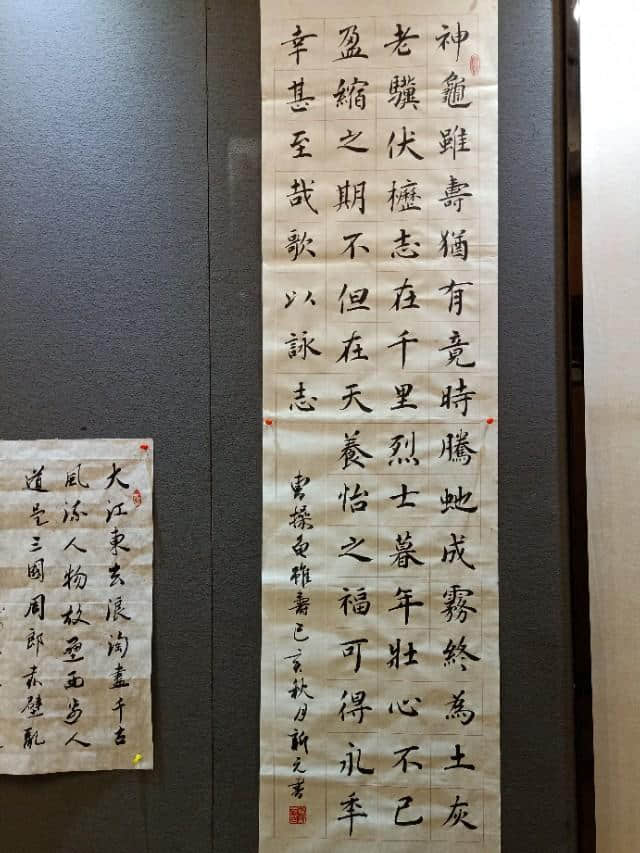 神龜雖壽猶有竟時騰虵成霧終為土灰
老驥伏櫪志在千里烈士暮年壯心不已
盈縮之期不但在天養怡之福可得永秊
幸甚至哉歌以詠志
曹操龜雖壽己亥秋月新元書
大江東去浪淘盡千古
風流人物故壘西邊人
道是三國周郎赤壁亂